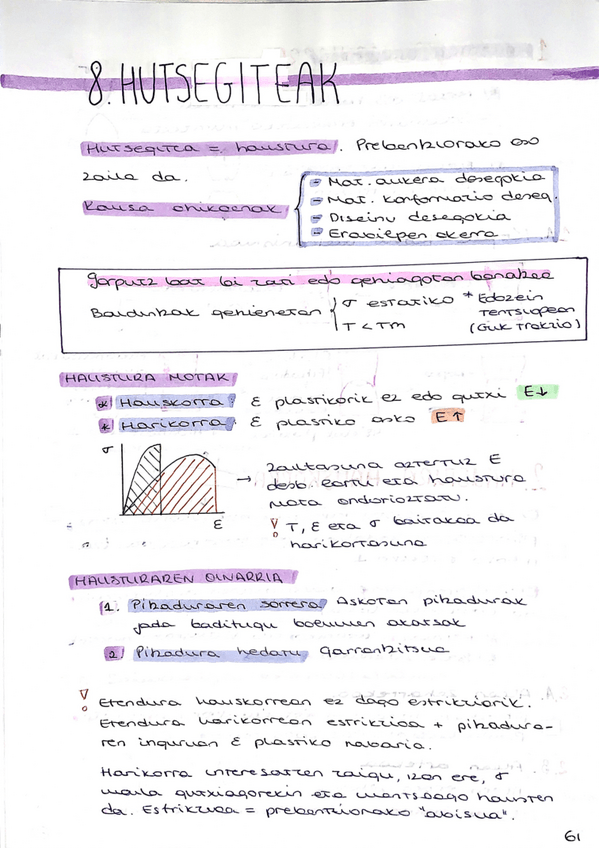 8. HUTSEGITEAK
Hutsegitea = haustura. Prebentziorako oso
zaila da.
Kausa ohikoenak
- Mat. aukera desegokia
- Mat. konformazio deseg.
- Diseinu desegokia
- Erabilpen okerra
gorputz bat bi zati edo gehiagotan banatzea
Baldintzak gehienetan
σ estatiko * Edozein
tentsiopean
T < Tm (Guk trakzio)
HAUSTURA MOTAK
* Hauskorra: ε plastikorik ez edo gutxi E↓
* Harikorra: ε plastiko asko E↑
σ
ε
→ Zailtasuna aztertuz E
desb. lortu eta haustura
mota ondorioztatu.
! T, ε eta σ baitakoa da
harikortasuna
HAUSTURAREN OINARRIA
1. Pitzaduraren sorrera Askotan pitzadurak
jada baditugu barnean akatsak
2. Pitzadura hedatu garrantzitsua
! Etendura hauskorrean ez dago estrikziorik.
Etendura harikorrean estrikzioa + pitzadura-
ren inguruan ε plastiko nabaria.
Harikorra interesatzen zaigu, izan ere, σ
maila gutxiagorekin eta mantsoago hausten
da. Estrikzioa = prebentziorako "abisua".
61